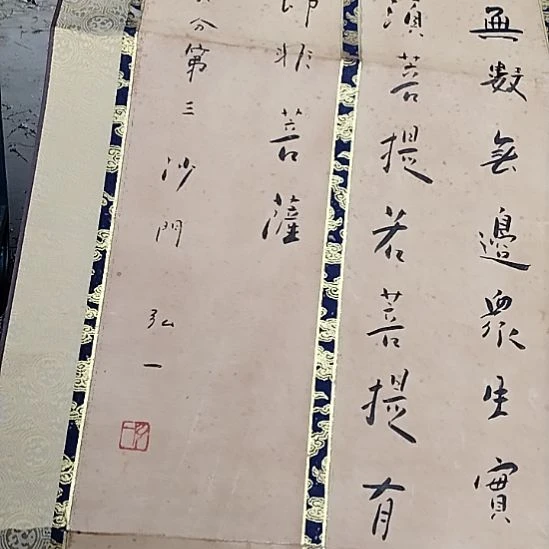 無數無邊眾生實
須菩提若菩提有
即非菩薩
分第三沙門弘一